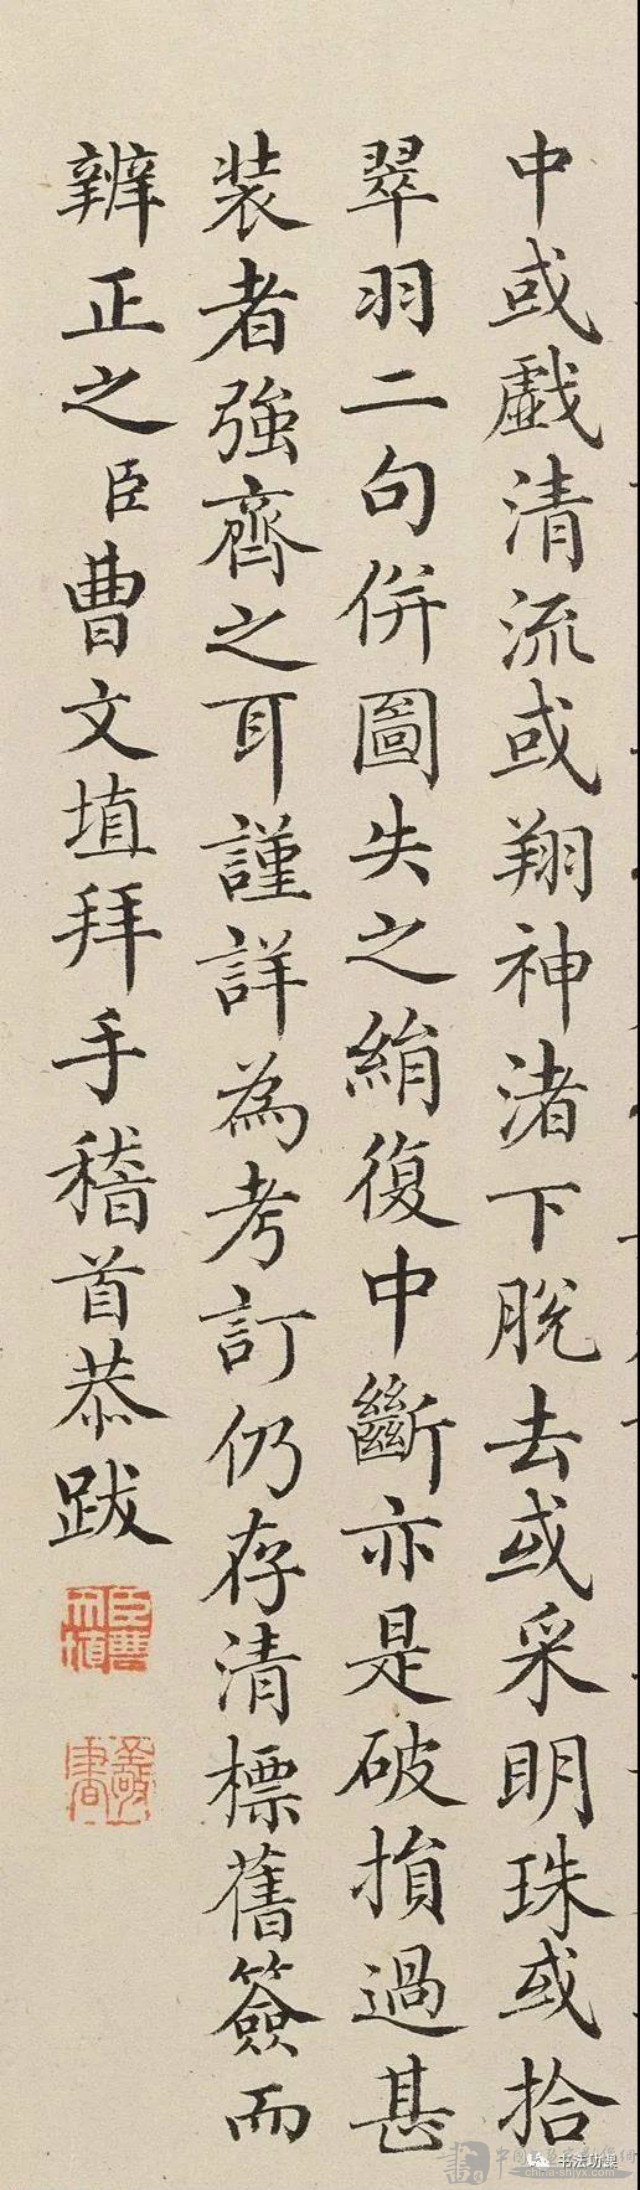 中或戱清流或翔神渚下脫去或采明珠或拾
翠羽二句併圖失之絹復中斷亦是破損過甚
装者強齊之耳謹詳為考訂仍存清標舊簽而
辨正之臣曹文埴拜手稽首恭跋
臣曹文埴
書法功課
china-shjyx.com